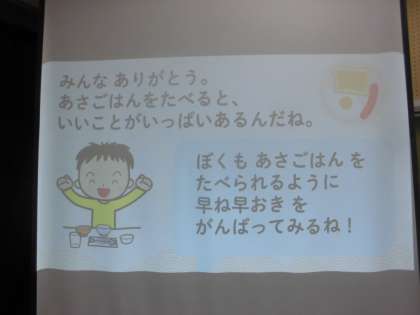 みんな ありがとう。
あさごはんをたべると、
いいことがいっぱいあるんだね。
ぼくも あさごはん を
たべられるように
早ね早おき を
がんばってみるね！